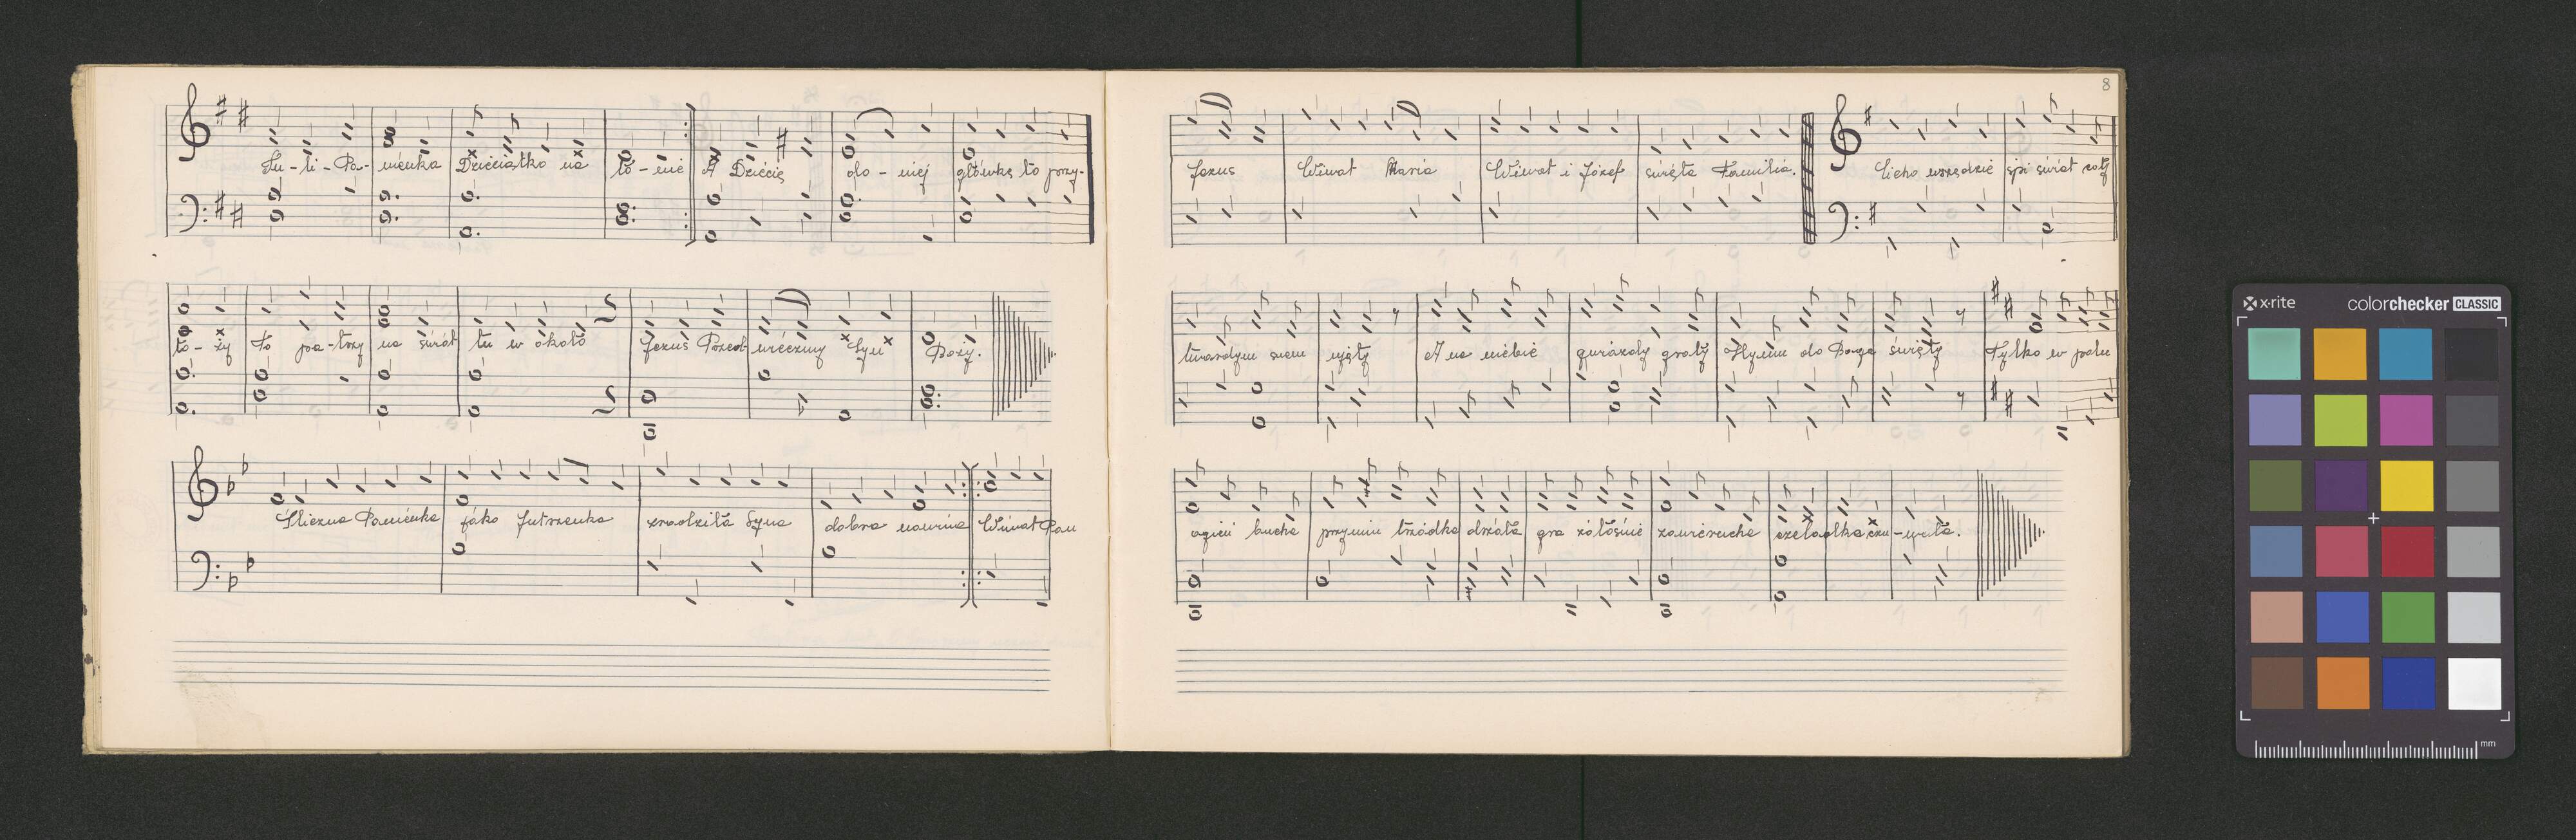 Tu-li-Pa-nienka Dzieciątko na ło-nie A Dziecię do-niej główkę to przy-
ło-ży To pa-trzy na świat tu w około Jezus Przed-wieczny Syn Boży.
Śliczna Panienka jako Jutrzenka zrodziła Syna dobra nowina Wiwat Pan
8
Jezus Wiwat Maria Wiwat i Józef święta Familia. Cicho wszędzie śpi świat cały
twardym snem ujęty A na niebie gwiazdy grały Hymn do Boga święty Tylko w polu
ogień bucha przy nim trzódka drzała gra żałośnie zawierucha czeladka czu-wała.
x-rite
colorchecker CLASSIC
mm